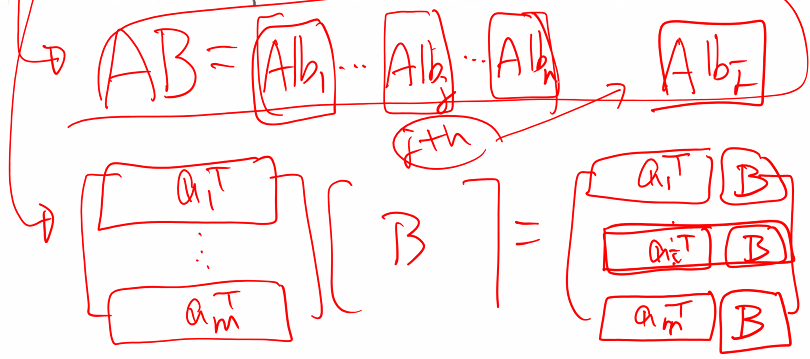 AB = [A𝕓₁ ⋯ A𝕓ⱼ ⋯ A𝕓ₙ] A𝕓ᵢ
j+h
[a₁ᵀ ⋮ aₘᵀ] [B] = [a₁ᵀ B ⋮ aᵢᵀ B aₘᵀ B]